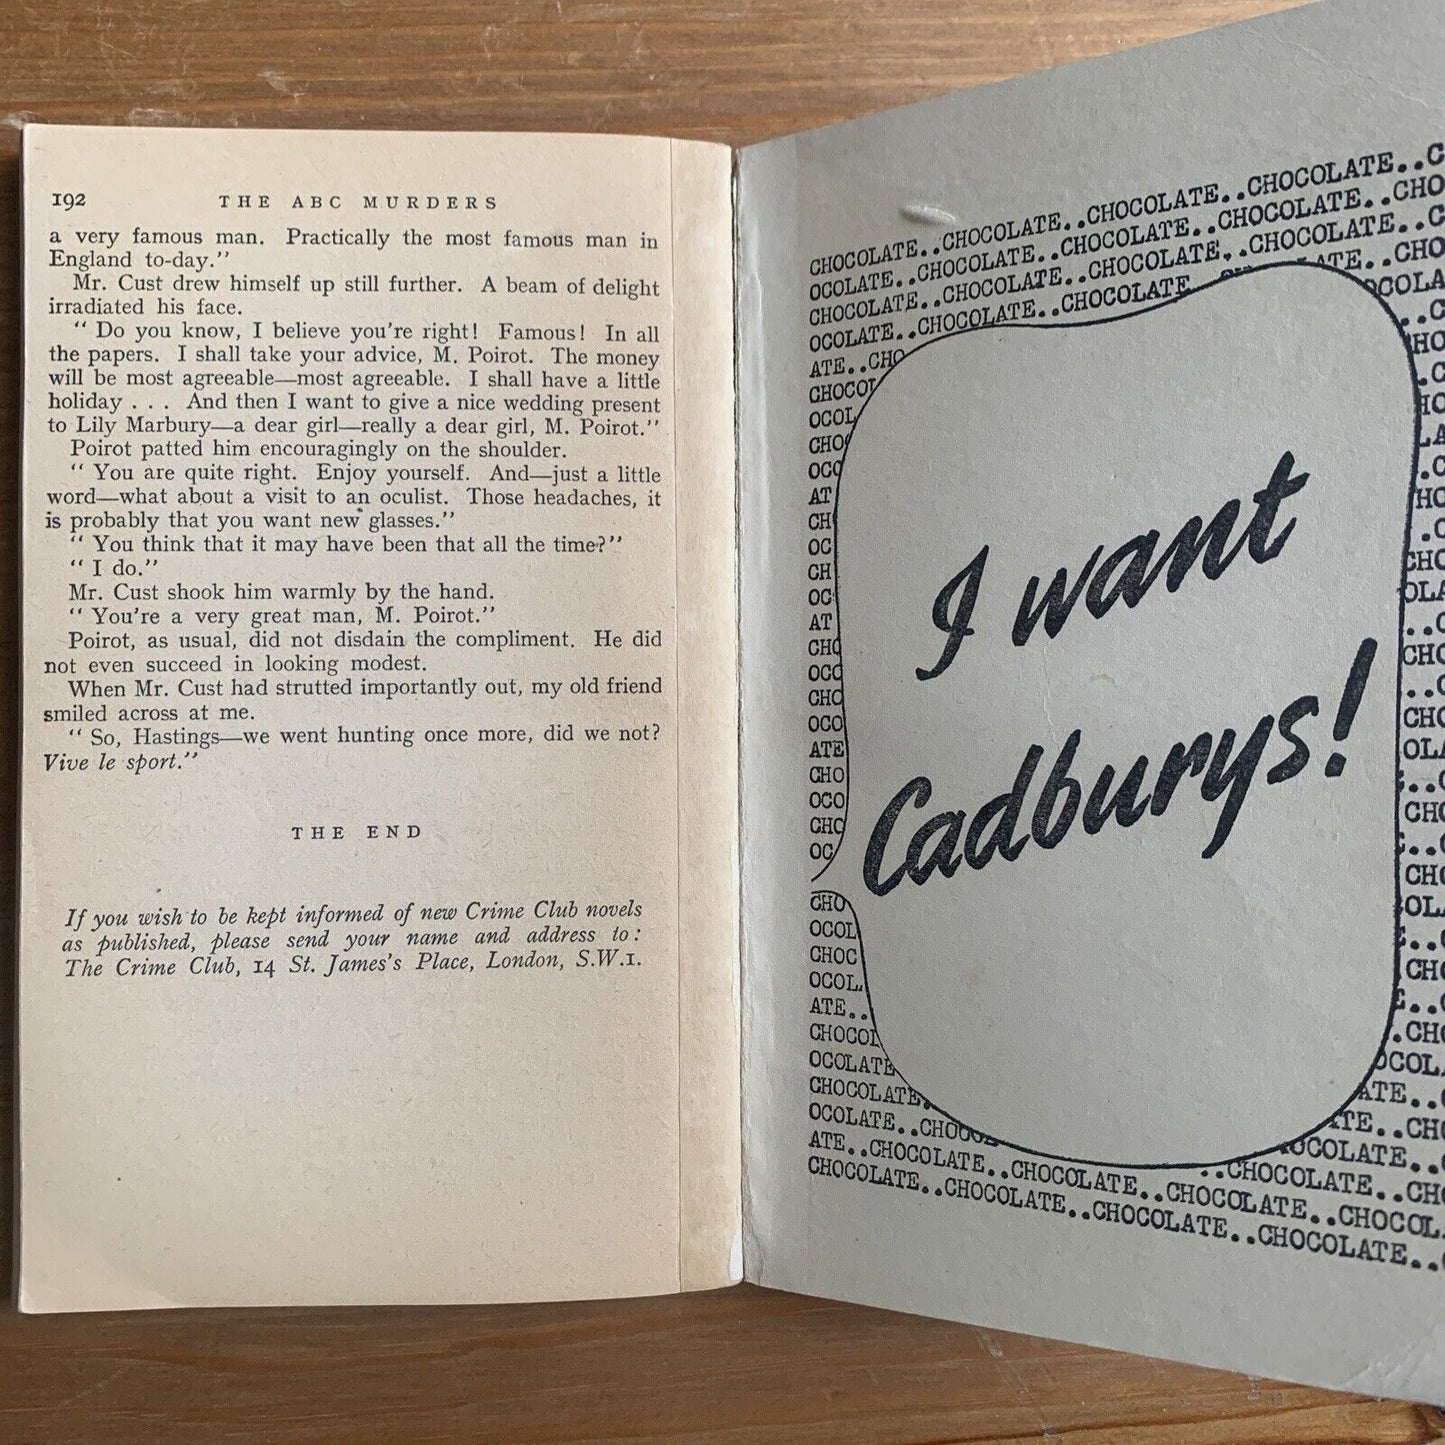 192 THE ABC MURDERS
a very famous man. Practically the most famous man in
England to-day."
Mr. Cust drew himself up still further. A beam of delight
irradiated his face.
" Do you know, I believe you're right! Famous! In all
the papers. I shall take your advice, M. Poirot. The money
will be most agreeable—most agreeable. I shall have a little
holiday . . . And then I want to give a nice wedding present
to Lily Marbury—a dear girl—really a dear girl, M. Poirot."
Poirot patted him encouragingly on the shoulder.
" You are quite right. Enjoy yourself. And—just a little
word—what about a visit to an oculist. Those headaches, it
is probably that you want new glasses."
" You think that it may have been that all the time?"
" I do."
Mr. Cust shook him warmly by the hand.
" You're a very great man, M. Poirot."
Poirot, as usual, did not disdain the compliment. He did
not even succeed in looking modest.
When Mr. Cust had strutted importantly out, my old friend
smiled across at me.
" So, Hastings—we went hunting once more, did we not?
Vive le sport."
THE END
If you wish to be kept informed of new Crime Club novels
as published, please send your name and address to:
The Crime Club, 14 St. James's Place, London, S.W.1.
CHOCOLATE..CHOCOLATE..CHOCOLATE..CHOCOLATE..C
OCOLATE..CHOCOLATE..CHOCOLATE..CHOCOLATE..CHO
CHOCOLATE..CHOCOLATE..CHOCOLATE..CHOCOLATE..C
OCOLATE..CHOCOLATE..CHOCOLATE
I want
Cadburys!
CHOCOLATE
OCOLATE..CHOCO
ATE..CHOCOLATE..CHOCOLATE..CHOCOLATE..CHOCOL
CHOCOLATE..CHOCOLATE..CHOCOLATE..CHOCOLATE..